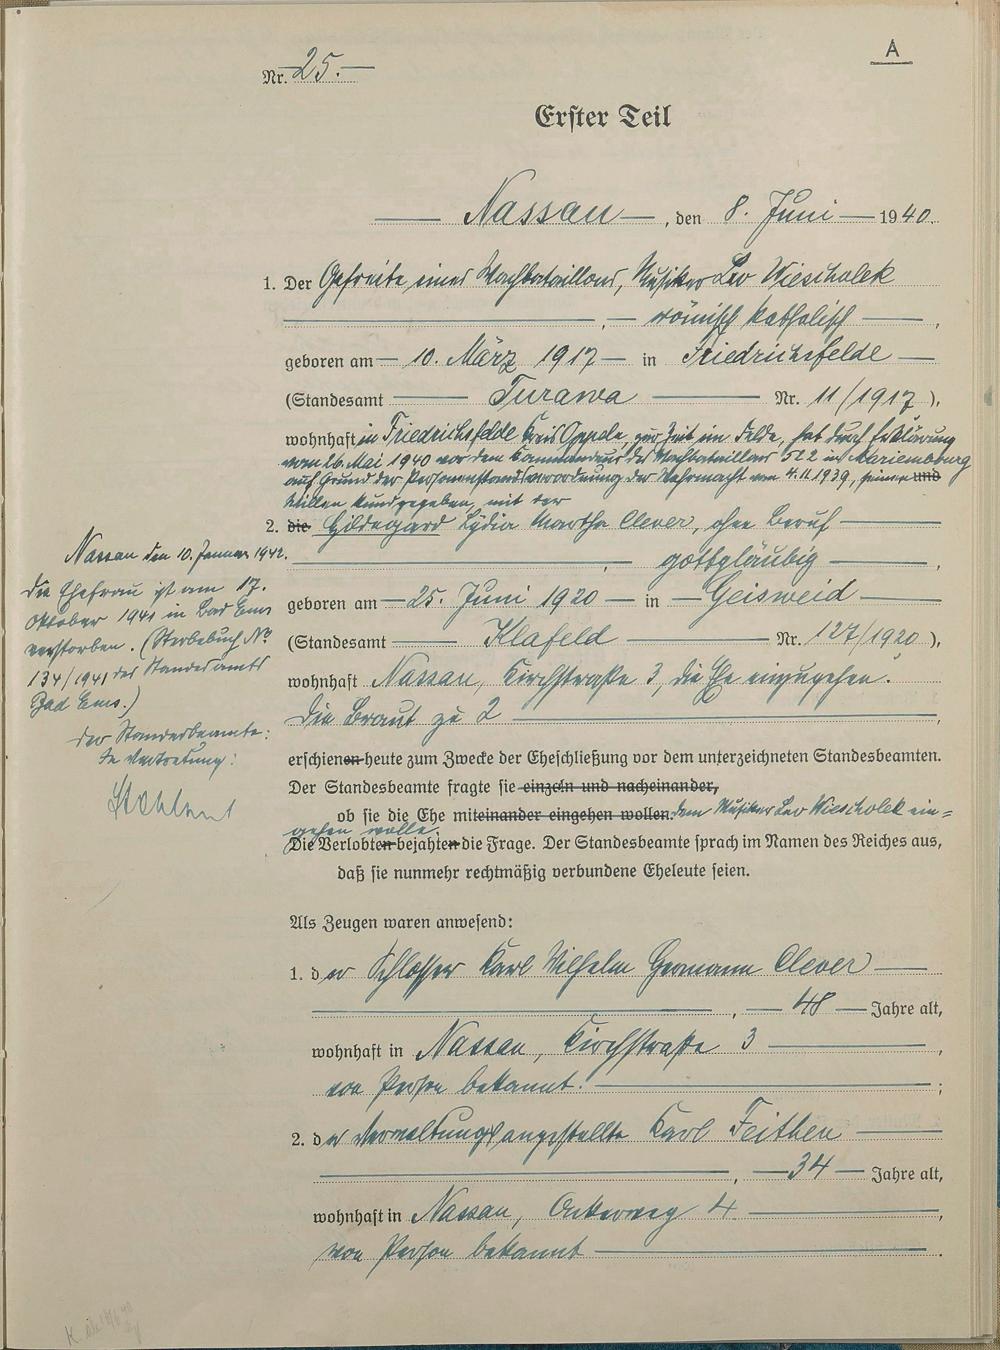 A
Nr. 25.
Erster Teil
Nassau, den 8. Juni 1940.
1. Der Gefreite eines Wachbataillons, Musiker Leo Wiescholek
, römisch katholisch,
geboren am 10. März 1917 in Friedrichsfelde
(Standesamt Turawa Nr. 11/1917),
wohnhaft in Friedrichsfelde Kreis Oppeln, zur Zeit im Felde, hat durch Erklärung
vom 26. Mai 1940 vor dem Kommandeur des Wachbataillons 522 in Marienbourg
auf Grund der Personenstandsverordnung der Wehrmacht vom 4.11.1939, seinen und
Willen kundgegeben, mit der
2. die Hildegard Lydia Martha Clever, ohne Beruf
, gottgläubig,
geboren am 25. Juni 1920 in Geisweid
(Standesamt Klafeld Nr. 127/1920),
wohnhaft Nassau, Kirchstraße 3, die Ehe einzugehen.
Die Braut zu 2,
erschienen heute zum Zwecke der Eheschließung vor dem unterzeichneten Standesbeamten.
Der Standesbeamte fragte sie einzeln und nacheinander,
ob sie die Ehe miteinander eingehen wollen. dem Musiker Leo Wiescholek ein=
gehen wolle.
Die Verlobten bejahten die Frage. Der Standesbeamte sprach im Namen des Reiches aus,
daß sie nunmehr rechtmäßig verbundene Eheleute seien.
Als Zeugen waren anwesend:
1. der Schlosser Karl Wilhelm Hermann Clever
, 48 Jahre alt,
wohnhaft in Nassau, Kirchstraße 3,
von Person bekannt.;
2. der Verwaltungsangestellte Karl Feithen
, 34 Jahre alt,
wohnhaft in Nassau, 4.,
von Person bekannt.
Nassau den 10. Januar 1942.
Die Ehefrau ist am 17.
Oktober 1941 in Bad Ems
verstorben. (Sterbebuch Nr.
134/1941 des Standesamts
Bad Ems.)
Der Standesbeamte:
In Vertretung: